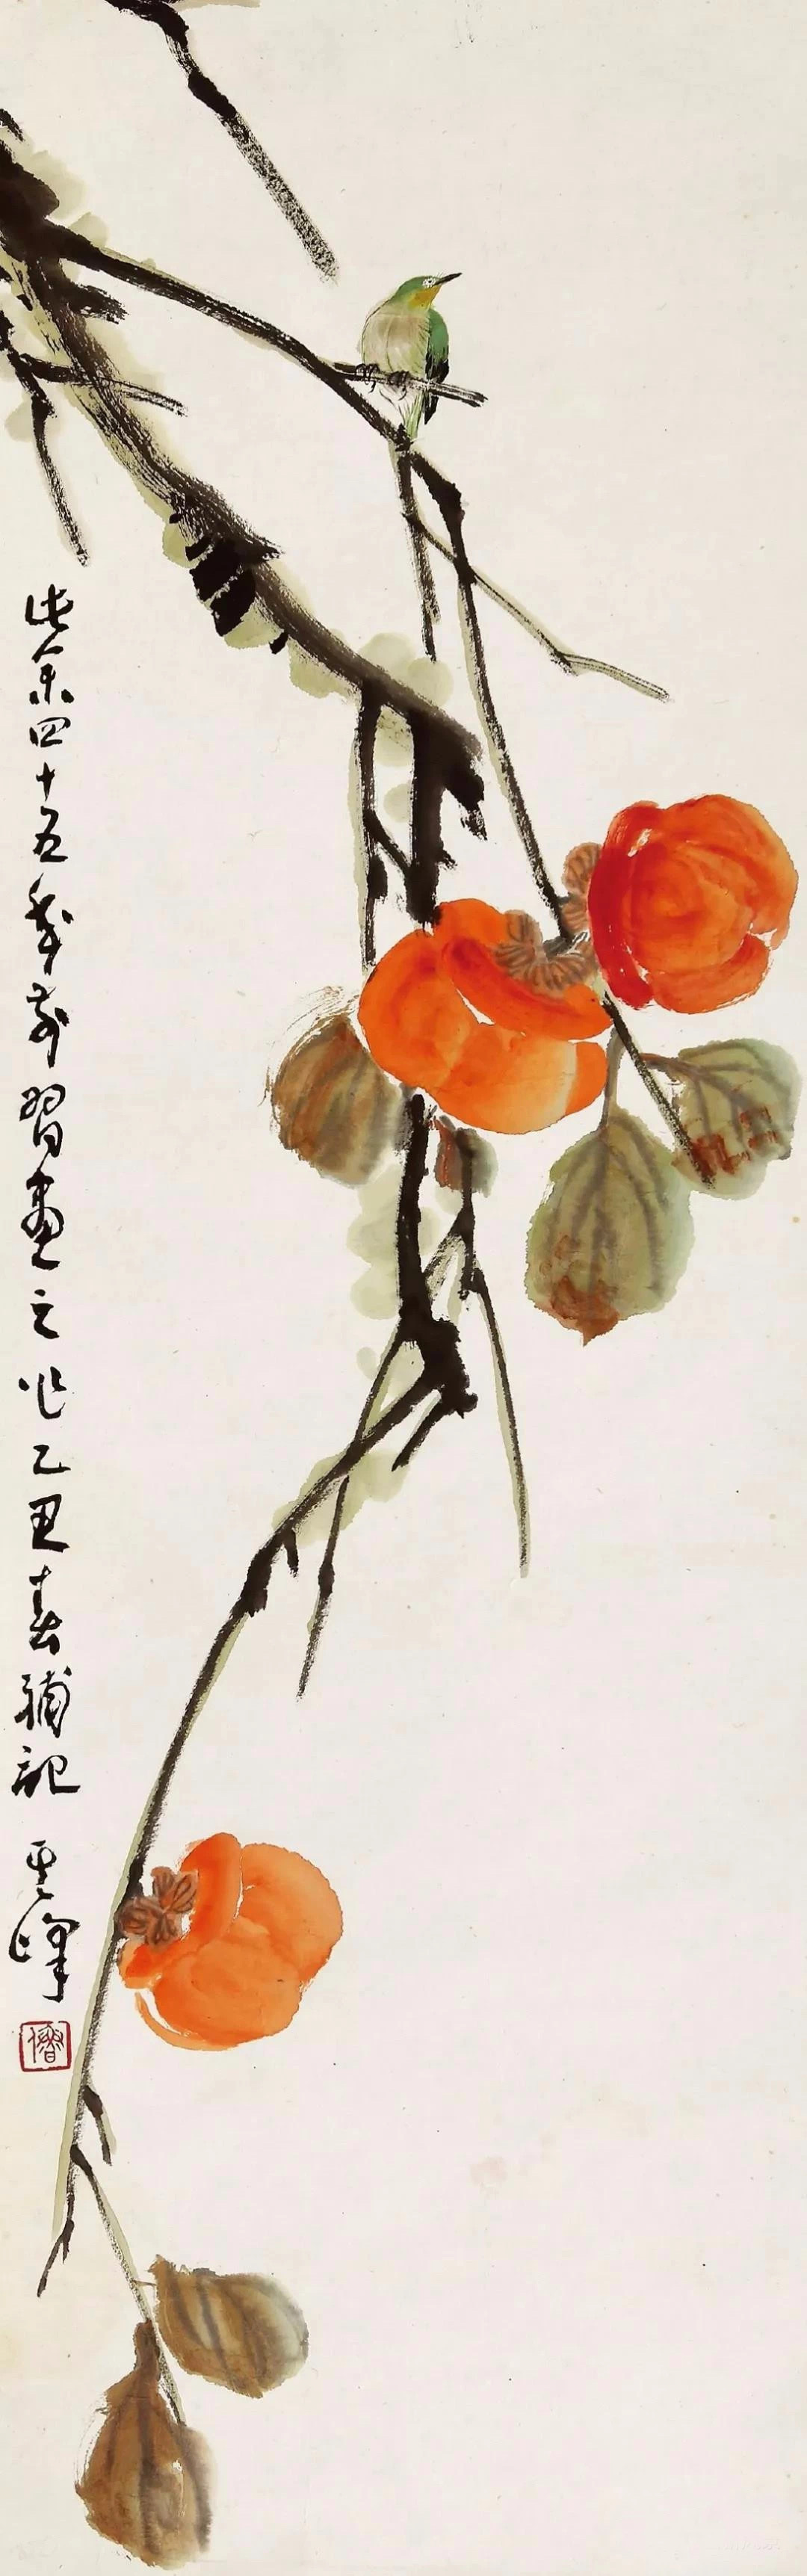 此余四十五年前習畫之作乙丑春補記
雲峰